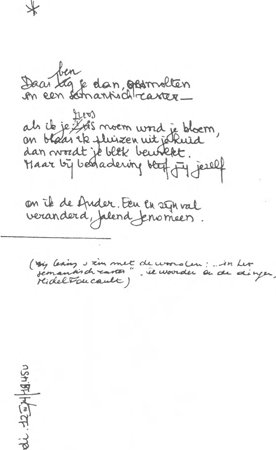 *
ben
Daar lag je dan, gesmolten
in een semantisch raster—
als ik je iris noem word je bloem,
en blaas ik pluizen uit je huid
dan wordt je blik bewolkt.
Maar bij benadering blijf jij jezelf
en ik de Ander. Een in zijn val
veranderd, falend fenomeen.
met de woorden: "in het
semantisch raster", de woorden en de dingen,
Michel Foucault)
di. 12